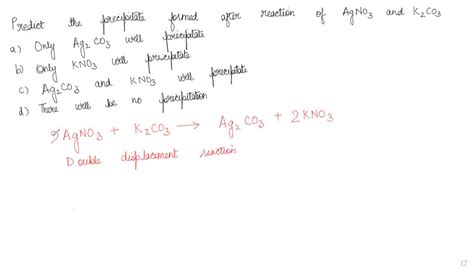 Predict the precipitate formed after reaction of AgNO₃ and K₂CO₃
a) Only Ag₂CO₃ will precipitate
b) Only KNO₃ will precipitate
c) Ag₂CO₃ and KNO₃ will precipitate
d) There will be no precipitation
2AgNO₃ + K₂CO₃ → Ag₂CO₃ + 2KNO₃
Double displacement reaction